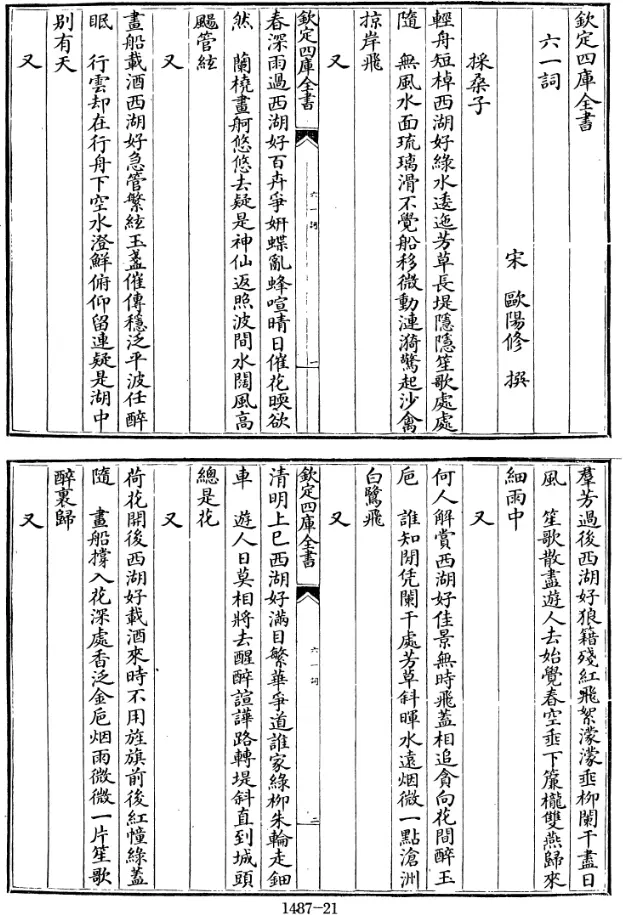 欽定四庫全書
六一詞
宋 歐陽修 撰
採桑子
輕舟短棹西湖好綠水逶迤芳草長堤隱隱笙歌處處
隨 無風水面琉璃滑不覺船移微動漣漪驚起沙禽
掠岸飛
又
欽定四庫全書
六一詞
一
春深雨過西湖好百卉爭妍蝶亂蜂喧晴日催花暎欲
然 蘭橈畫舸悠悠去疑是神仙返照波間水闊風高
颺管絃
又
畫船載酒西湖好急管繁絃玉盞催傳穩泛平波任醉
眠 行雲却在行舟下空水澄鮮俯仰留連疑是湖中
别有天
又
羣芳過後西湖好狼籍殘紅飛絮濛濛垂柳闌干盡日
風 笙歌散盡遊人去始覺春空垂下簾櫳雙燕歸來
細雨中
又
何人解賞西湖好佳景無時飛葢相追貪向花間醉玉
巵 誰知閒凭闌干處芳草斜暉水遠烟微一點滄洲
白鷺飛
又
欽定四庫全書
六一詞
二
清明上巳西湖好滿目繁華爭道誰家綠柳朱輪走鈿
車 遊人日莫相將去醒醉諠譁路轉堤斜直到城頭
總是花
又
荷花開後西湖好載酒來時不用旌旗前後紅幢綠葢
隨 畫船撐入花深處香泛金巵烟雨微微一片笙歌
醉裏歸
又
1487-21